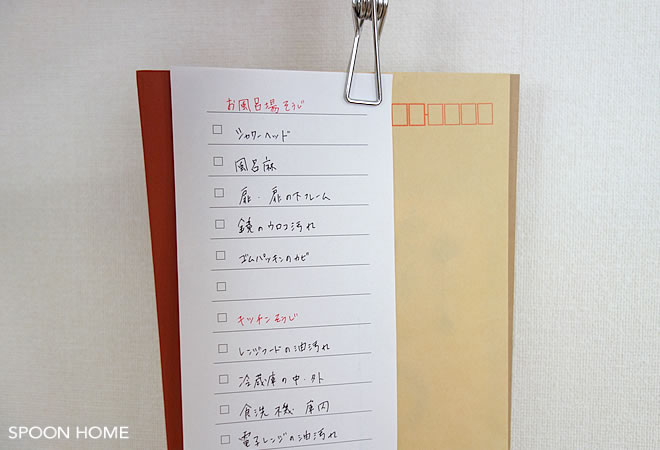 お風呂場そうじ
シャワーヘッド
風呂麻
扉・扉の下フレーム
鏡のウロコ汚れ
ゴムパッキンのカビ
キッチンそうじ
レンジフードの油汚れ
冷蔵庫の中・外
食洗機 庫内
電子レンジの油汚れ
SPOON HOME